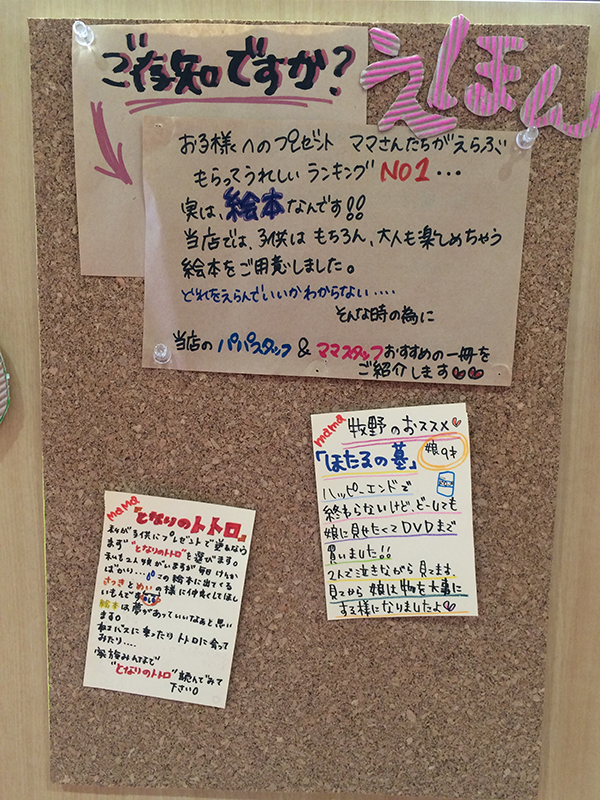 ご存知ですか?
えほん
お子様へのプレゼント ママさんたちがえらぶ
もらってうれしいランキング NO1...
実は、絵本なんです!!
当店では、子供は もちろん、大人も楽しめちゃう
絵本をご用意しました。
どれをえらんでいいかわからない....
そんな時の為に
当店の パパスタッフ & ママスタッフおすすめの一冊を
ご紹介します
mama 牧野のおススメ
「ほたるの墓」 娘9才
ハッピーエンドで
終わらないけど、どーしても
娘に見せたくてDVDまで
買いました!!
2人で泣きながら見てます
見てから娘は物を大事に
する様になりましたよ
mama 『となりのトトロ』
私が子供にプレゼントで選ぶなら
まず"となりのトトロ"を選びます。
私も2人娘がいますが毎日けんか
ばかり...この絵本に出てくる
さつきとめいの様に仲良くしてほし
いもんです
絵本は夢があっていいなぁと思い
ます。
ネコバスに乗ったりトトロに会って
みたり....
家族みんなで
"となりのトトロ"読んでみて
下さい。